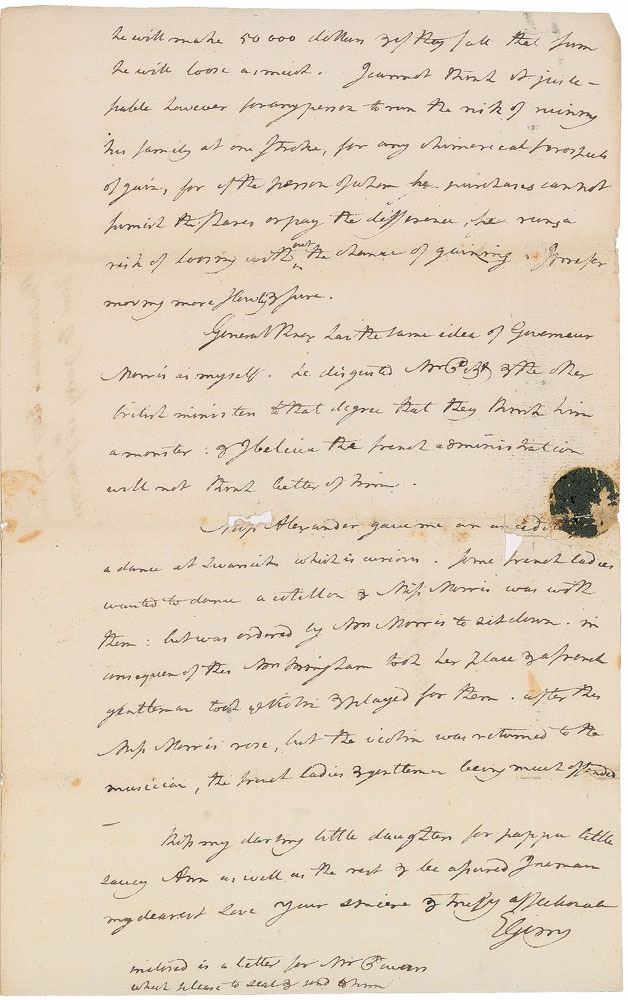 he will make 50 000 dollars & if they fall that sum
he will loose as much. I cannot think it justi-
fiable however for any person to run the risk of ruining
his family at one stroke, for any chimerical prospects
of gain, for if the person of whom he purchases cannot
furnish the shares or pay the difference, he runs a
risk of loosing with out the chance of gaining. I prefer
moving more slowly & sure.
General Knox has the same idea of Governeur
Morris as myself. he disgusted Mr Pitt & the other
british ministers to that degree that they think him
a monster: & I beleive the french administration
will not think better of him.
Miss Alexander gave me an anecdote
a dance at which is curious. some french ladies
wanted to dance a cotillon & Miss Morris was with
them: but was ordered by Mrs Morris to sit down. in
consequen of this Mrs Bingham took her place & a french
gentleman took a violin & played for them. after this
Miss Morris rose, but the violin was returned to the
musician, the french ladies & gentlemen being much offended
—
Kiss my darling little daughters for pappa little
saucy Ann as well as the rest & be assured I remain
my dearest Love Your sincere & truly affectionate
E Gerry
inclosed is a letter for Mr
which please to seal & send to him